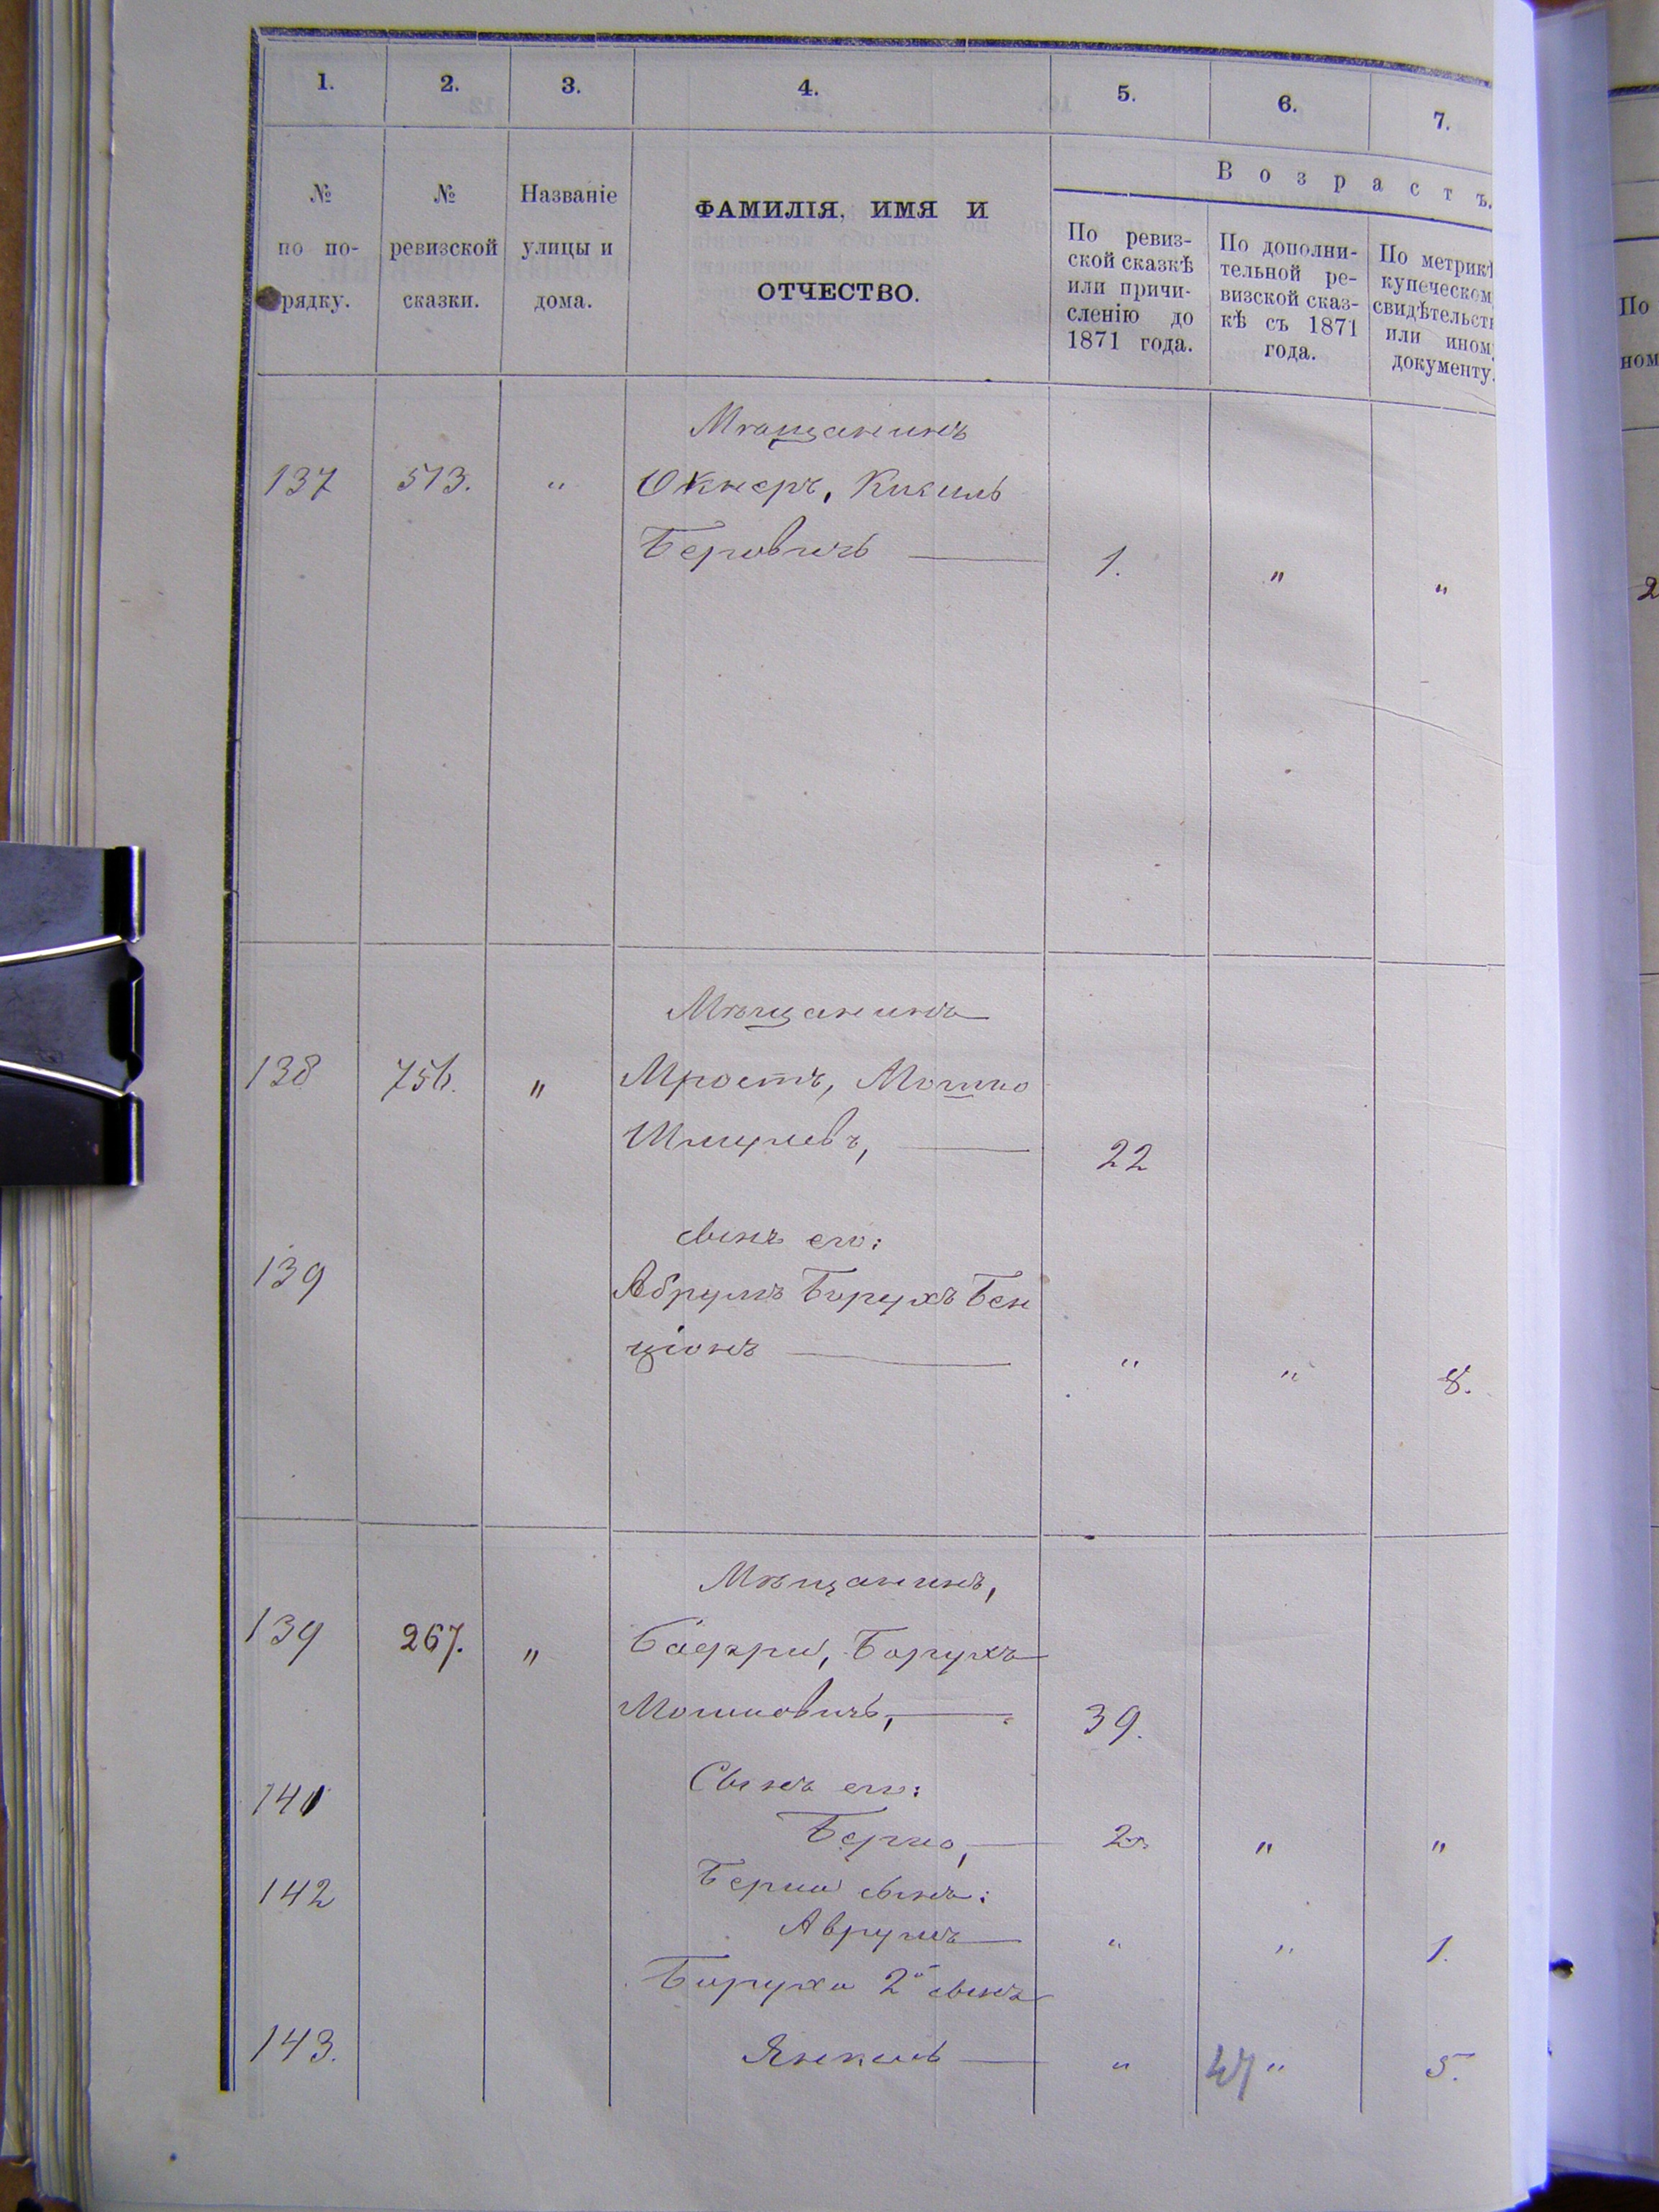 1. 2. 3. 4. 5. 6. 7.
№ по по-рядку.
№ ревизской сказки.
Названіе улицы и дома.
ФАМИЛІЯ, ИМЯ И
ОТЧЕСТВО.
Возрастъ.
По ревиз-
ской сказкѣ
или причи-
сленію до
1871 года.
По дополни-
тельной ре-
визской сказ-
кѣ съ 1871
года.
По метрикѣ
купеческом
свидѣтельств
или ином
документу.
Мѣщанинъ
137 513. " Окнеръ, Кисиль
Беровичъ 1. " "
Мѣщанинъ
138 756. " Мростъ, Мошко
Шмулевъ, 22
сынъ его:
139 Абрумъ Борухъ Бен
ціонъ " " 8.
Мѣщанинъ,
139 267. " Борухъ
Мошковичъ, 39.
141 Сынъ его:
Берко, 2. " "
142 Берки сынъ:
Аврумъ " " 1.
Боруха 2й сынъ
143. Янкель " " 5.